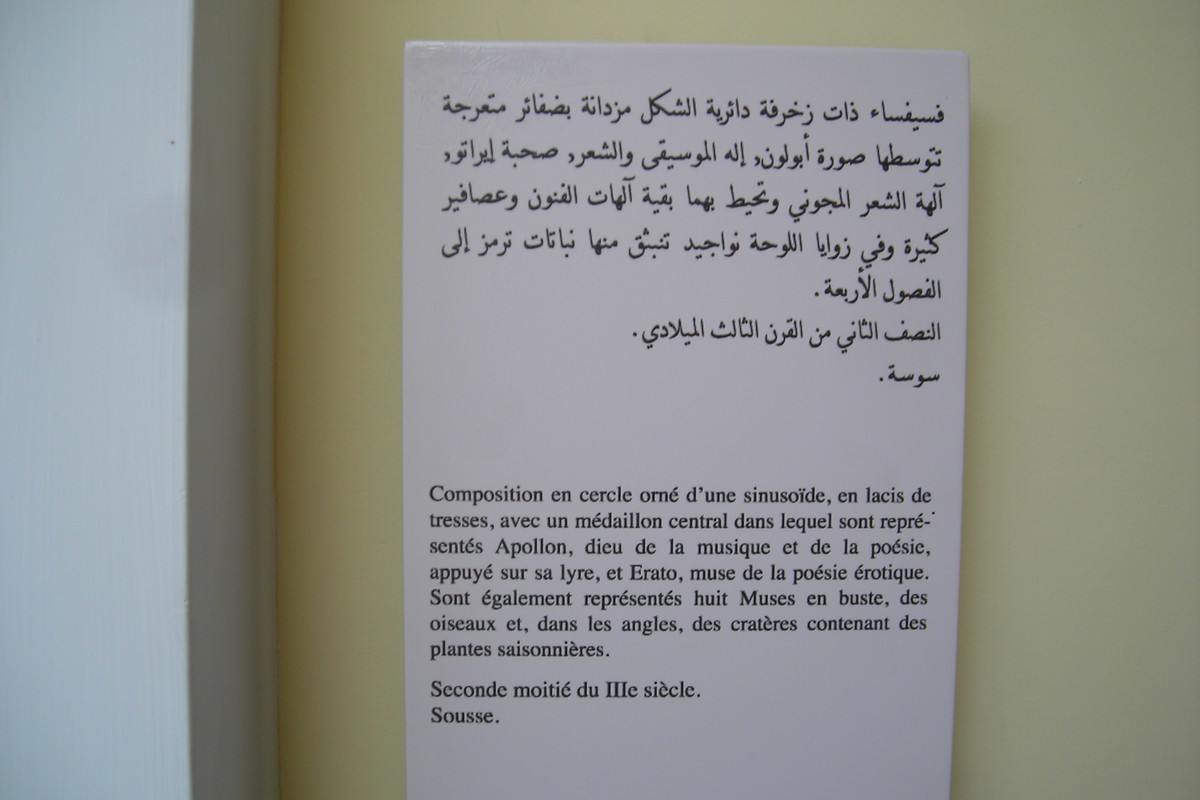 فسيفساء ذات زخرفة دائرية الشكل مزدانة بضفائر متعرجة
تتوسطها صورة أبولون, إله الموسيقى والشعر, صحبة إيراتو,
آلهة الشعر المجوني وتحيط بهما بقية آلهات الفنون وعصافير
كثيرة وفي زوايا اللوحة نواجيد تنبثق منها نباتات ترمز إلى
الفصول الأربعة.
النصف الثاني من القرن الثالث الميلادي.
سوسة.
Composition en cercle orné d'une sinusoïde, en lacis de
tresses, avec un médaillon central dans lequel sont repré-
sentés Apollon, dieu de la musique et de la poésie,
appuyé sur sa lyre, et Erato, muse de la poésie érotique.
Sont également représentés huit Muses en buste, des
oiseaux et, dans les angles, des cratères contenant des
plantes saisonnières.
Seconde moitié du IIIe siècle.
Sousse.